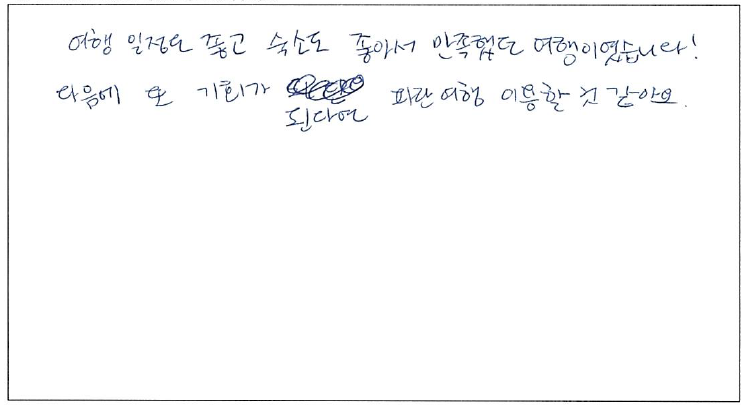 여행 일정도 좋고 숙소도 좋아서 만족했던 여행이였습니다!
다음에 또 기회가 된다면 파란여행 이용할 것 같아요.